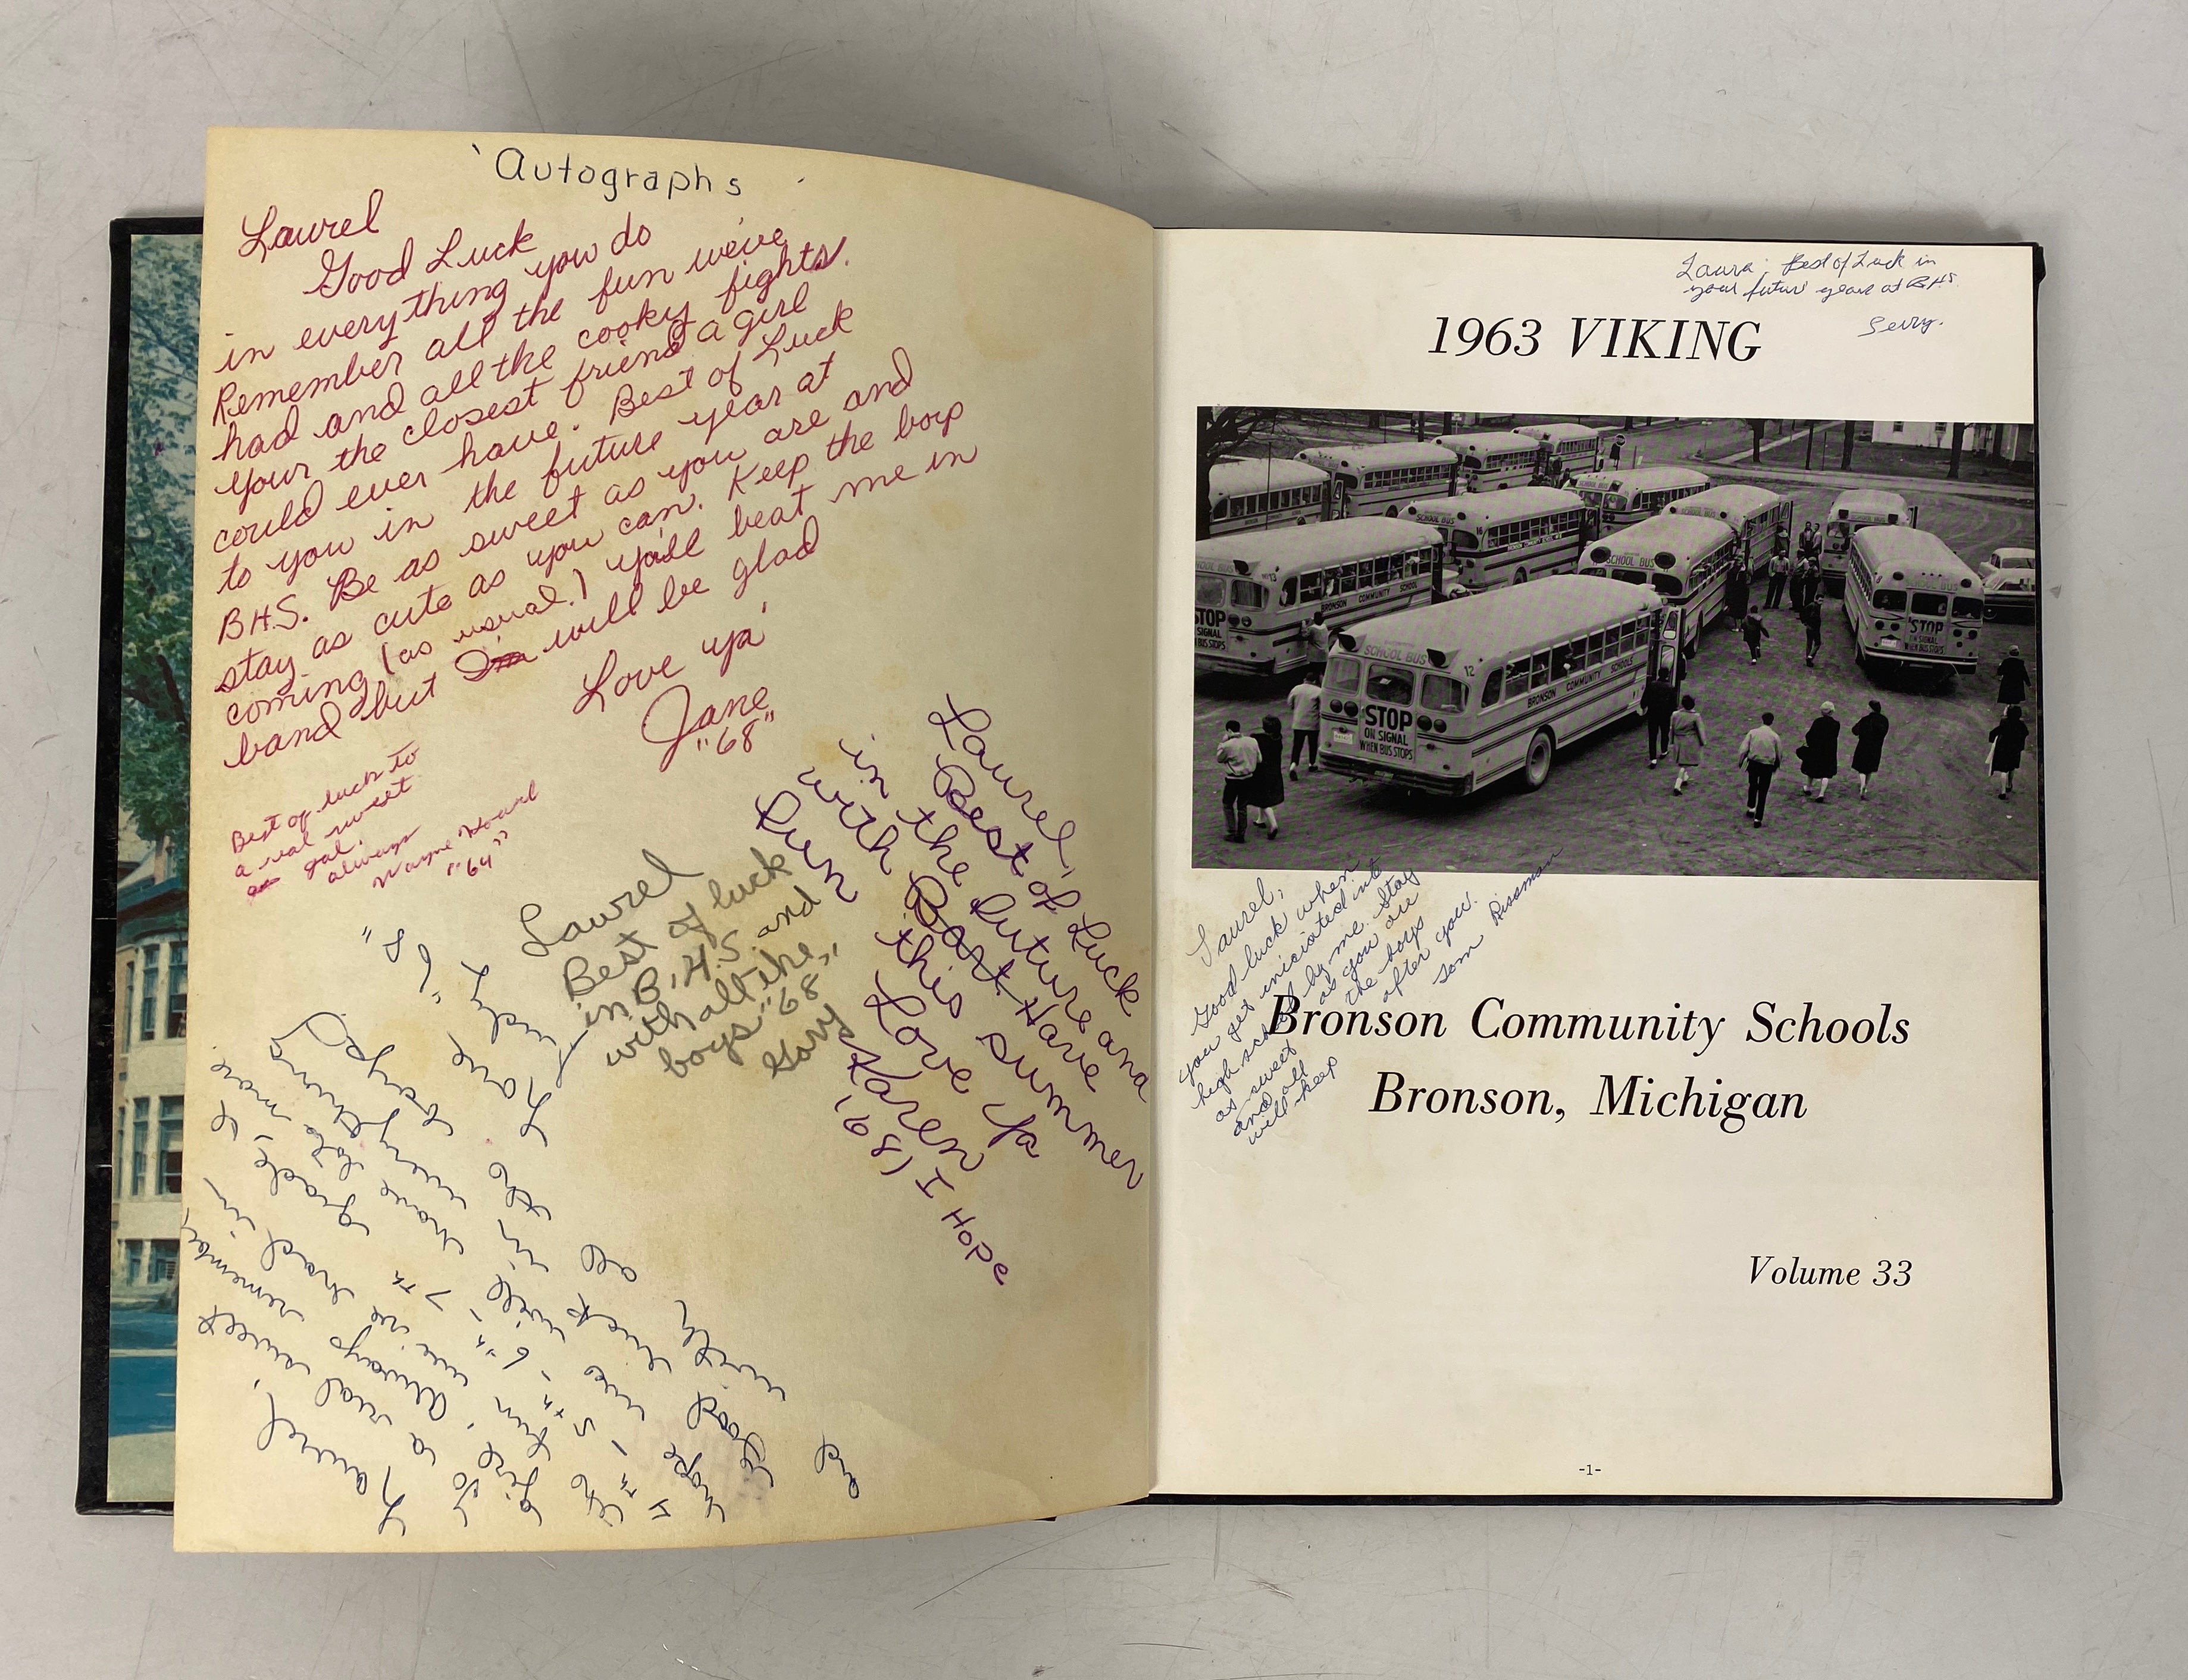 Autographs
Laurel
Good Luck
in everything you do
Remember all the fun weive
had and all the cooky fights.
Your the closest friend a girl
could ever have. Best of Luck
to you in the future year at
B.H.S. Be as sweet as you are and
stay as cute as you can. Keep the boys
coming (as usual.) ya'll beat me in
band but will be glad
Love ya'
Jane
"68"
Best of luck to
a real sweet
gal.
always
Wayne
"64"
Laurel
Best of luck
in B.H.S. and
with all the
boys "68"
Gary
Laurel,
Best of Luck
in the future and
with Bart. Have
fun this summer
Love Ya
Karen
(68) I Hope
Laurel,
To a real sweet
girl. Always remember
the fun we've had in
4th - 5th - 6th - 7th grade &
hope we will have lots more.
Good luck in everything
with all the boys
Luck
"68"
1963 VIKING
Laura: Best of Luck in
your future years at BHS.
STOP
ON SIGNAL
WHEN BUS STOPS
SCHOOL BUS
12
BRONSON COMMUNITY SCHOOLS
Laurel,
Good luck when
you get iniciated into
high school by me. Stay
as sweet as you are
and all the boys
will keep after you.
Bronson Community Schools
Bronson, Michigan
Volume 33
-1-